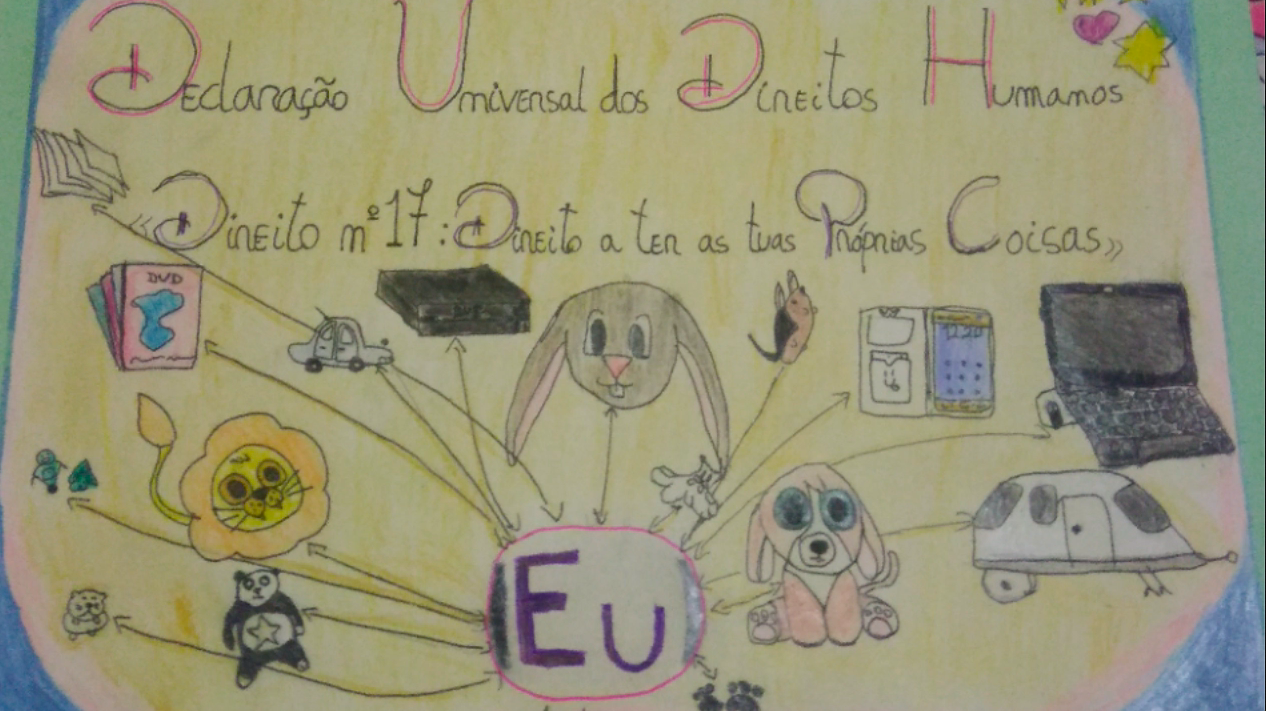 Declaração Universal dos Direitos Humanos
«Direito nº17: Direito a ter as tuas Próprias Coisas»
DVD
DVD
Eu